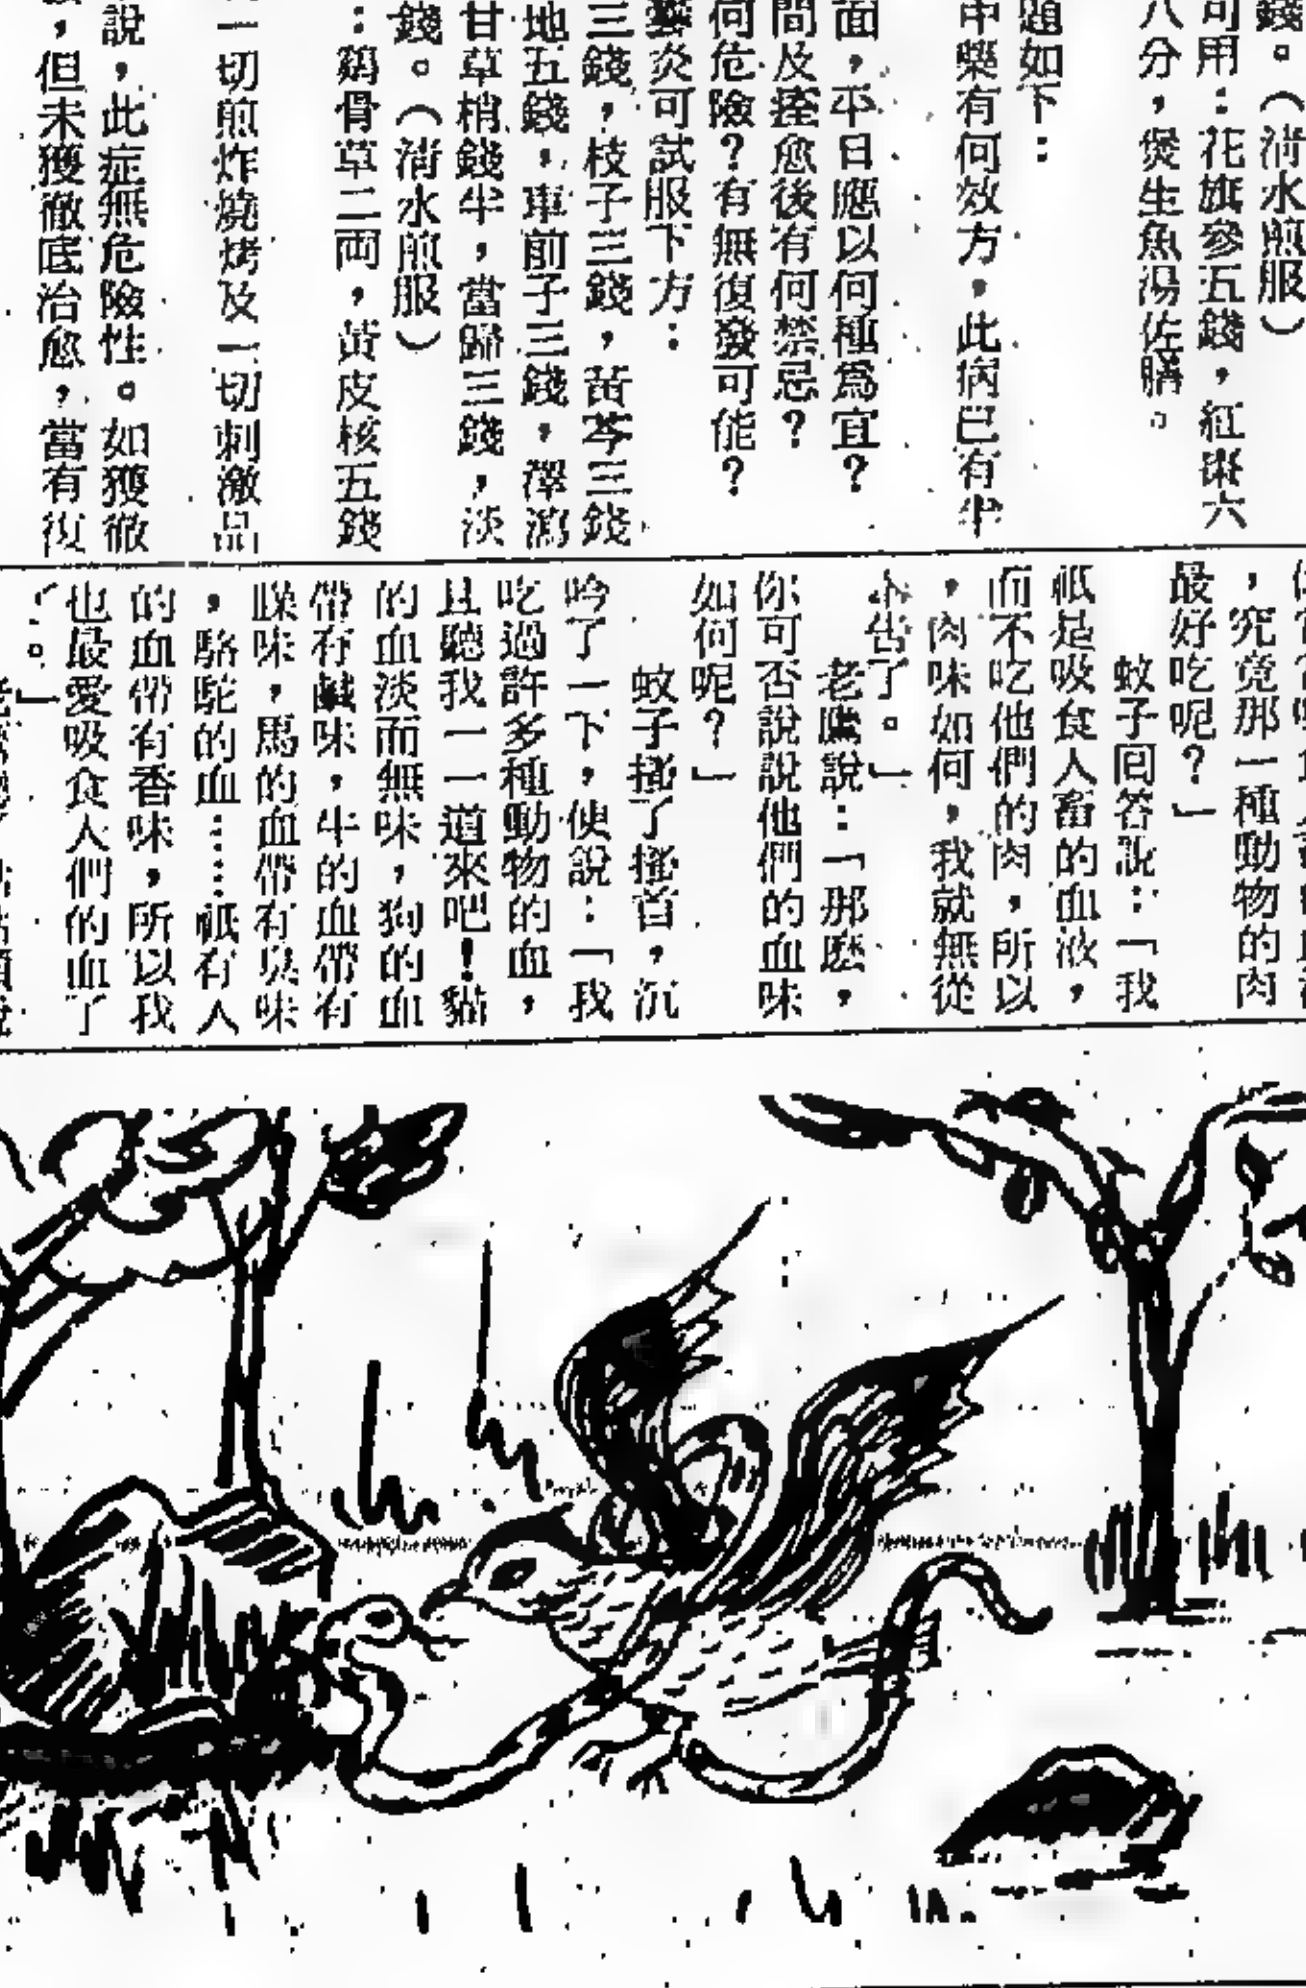 錢。（淸水煎服）
可用：花旗參五錢，紅棗六
八分，煲生魚湯佐膳。
題如下：
中藥有何效方，此病已有半
面，平日應以何種爲宜？
問及痊愈後有何禁忌？
何危險？有無復發可能？
炎可試服下方：
三錢，枝子三錢，黃芩三錢
地五錢，車前子三錢，澤瀉
甘草梢錢半，當歸三錢，淡
錢。（淸水煎服）
：鷄骨草二両，黃皮核五錢
一切煎炸燒烤及一切刺激品
說，此症無危險性。如獲徹
，但未獲徹底治愈，當有復
，究竟那一種動物的肉
最好吃呢？」
蚊子回答說：「我
祇是吸食人畜的血液，
而不吃他們的肉，所以
，肉味如何，我就無從
告了。」
老鷹說：「那麽，
你可否說說他們的血味
如何呢？」
蚊子搔了搔首，沉
吟了一下，便說：「我
吃過許多種動物的血，
且聽我一一道來吧！貓
的血淡而無味，狗的血
帶有鹹味，牛的血帶有
臊味，馬的血帶有臭味
，駱駝的血……祇有人
的血帶有香味，所以我
也最愛吸食人們的血了
。」